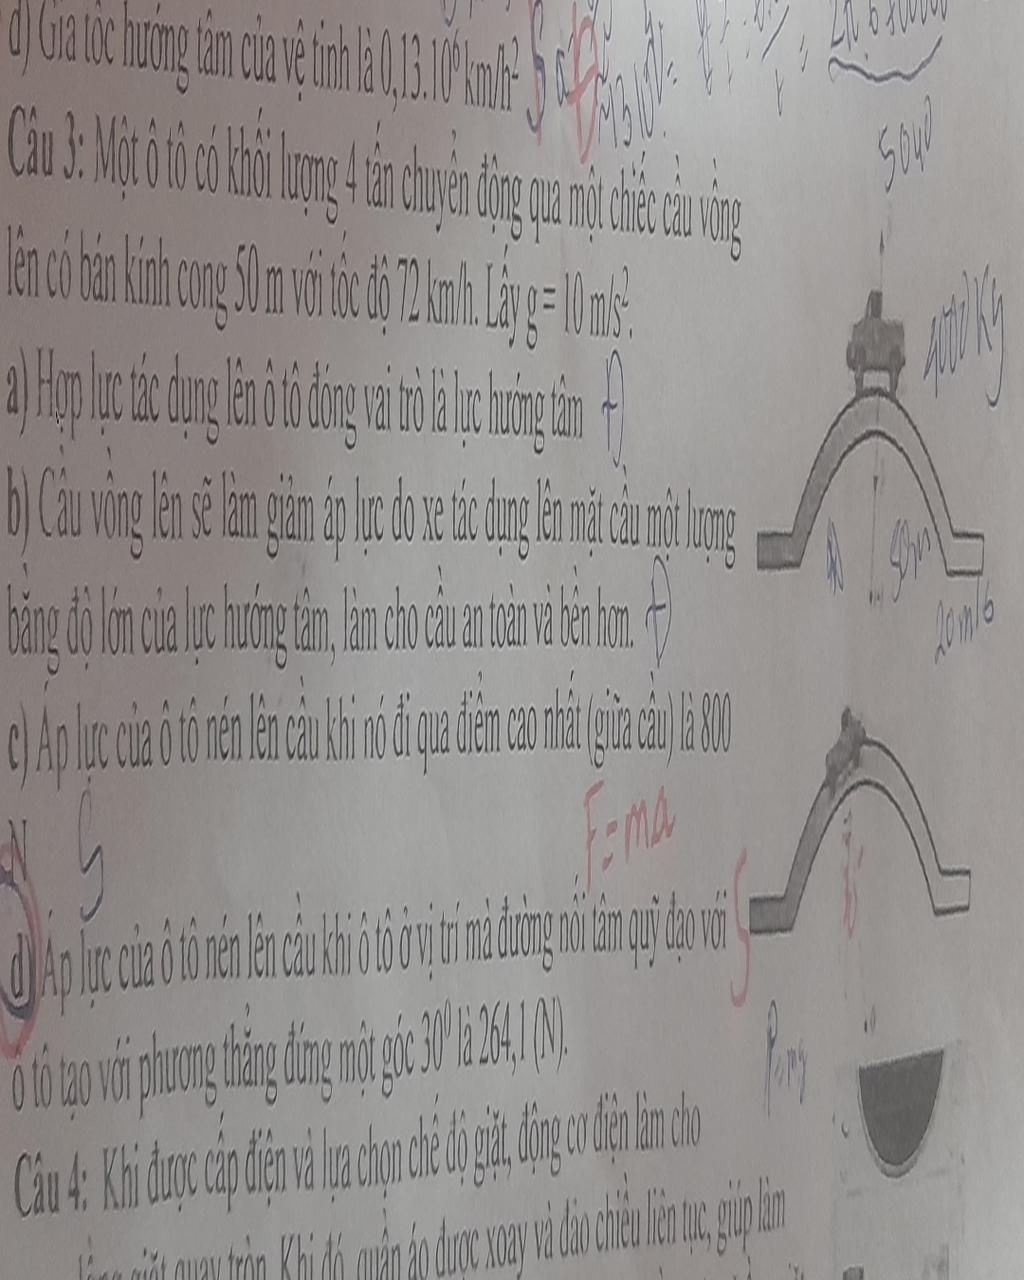 d) Gia tốc hướng tâm của vệ tinh là 0,13.10⁶ km/h² S
5040
Câu 3: Một ô tô có khối lượng 4 tấn chuyển động qua một chiếc cầu vồng
lên có bán kính cong 50 m với tốc độ 72 km/h. Lấy g = 10 m/s².
4000 Kg
a) Hợp lực tác dụng lên ô tô đóng vai trò là lực hướng tâm Đ
b) Cầu vồng lên sẽ làm giảm áp lực do xe tác dụng lên mặt cầu một lượng
50m
bằng độ lớn của lực hướng tâm, làm cho cầu an toàn và bền hơn. Đ
20 m/s
c) Áp lực của ô tô nén lên cầu khi nó đi qua điểm cao nhất (giữa cầu) là 800
N S
F = ma
d) Áp lực của ô tô nén lên cầu khi ô tô ở vị trí mà đường nối tâm quỹ đạo với S
ô tô tạo với phương thẳng đứng một góc 30⁰ là 264,1 (N).
P = mg
Câu 4: Khi được cấp điện và lựa chọn chế độ giặt, động cơ điện làm cho
lồng giặt quay tròn. Khi đó, quần áo được xoay và đảo chiều liên tục, giúp làm